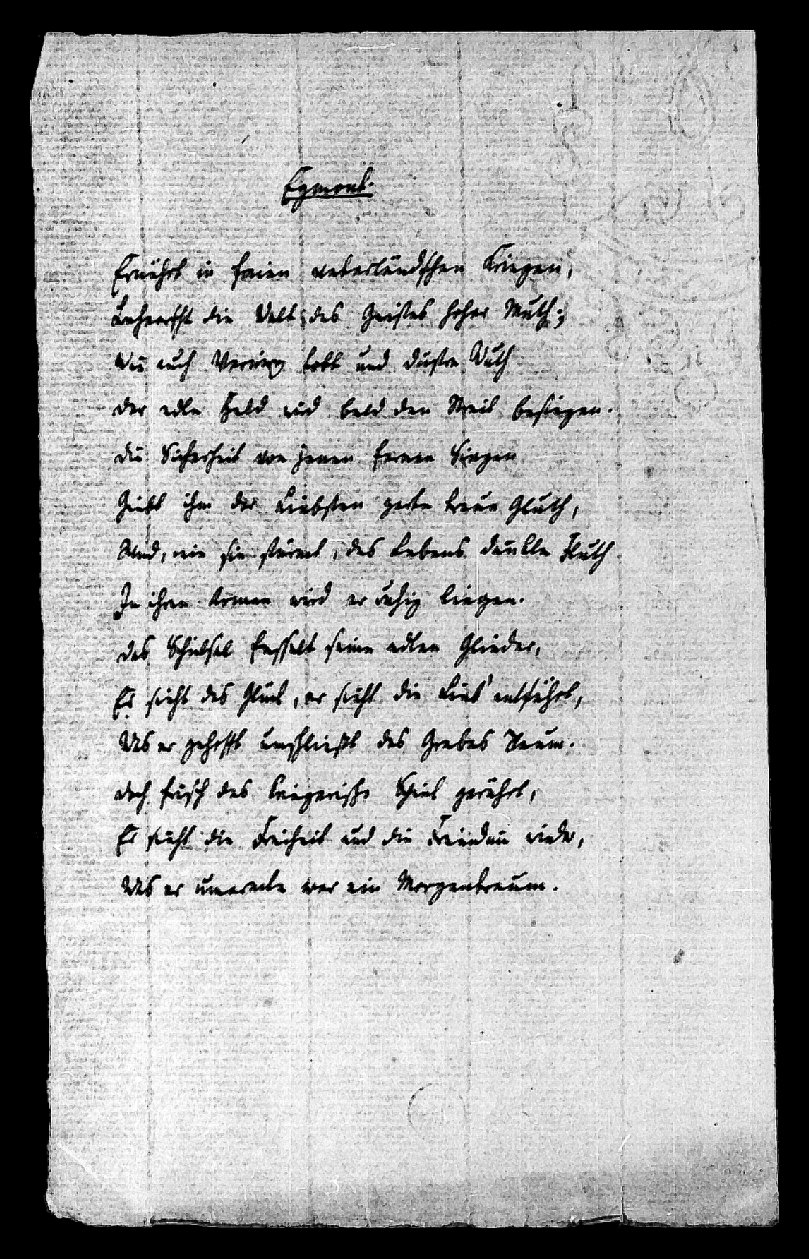 Egmont.
Ernährt in freien vaterländschen Kriegen,
Beherrscht die Welt des Geistes hoher Muth;
Wie auch tobt und düstre Wuth
Der edle Held wird bald den Streit besiegen.
Die Sicherheit von jenen fernen Siegen
Giebt ihm der Liebsten zarte treue Gluth,
Und, wie sie stürmt, des Lebens dunkle Fluth
In ihren Armen wird er ruhig liegen.
Das Schicksal fesselt seine edlen Glieder,
Er sieht das Glück, er sieht die Lieb' entführt,
Was er gehofft umschließt des Grabes Raum.
Doch frisch das kriegerische Spiel gerührt,
Er sieht die Freiheit und die Freundin wieder,
Was er umarmte war ein Morgentraum.